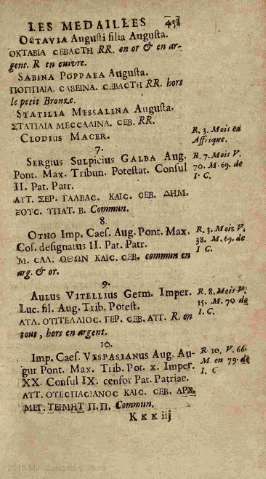 LES MEDAILLES 451
OCTAVIA Augusti filia Augusta.
ΟΚΤΑΒΙΑ CΕΒΑCΤΗ RR. en or & en ar-
gent. R en cuivre.
SABINA POPPAEA Augusta.
ΠΟΠΠΑΙΑ. CΑΒΕΙΝΑ. CΕΒΑCΤΗ RR. hors
le petit Bronze.
STATILIA MESSALINA Augusta.
ΣΤΑΤΙΛΙΑ ΜΕCCΑΛΙΝΑ. CΕΒ. RR.
CLODIUS MACER. R. 3. Mois en
Affrique.
7.
SERGIUS SULPICIUS GALBA Aug. R. 7. Mois V.
Pont. Max. Tribun. Potestat. Consul 70. M. 69. de
II. Pat. Patr. I. C.
ΑΥΤ. ΣΕΡ. ΓΑΛΒΑΣ. ΚΑΙC. CΕΒ. ΔΗΜ.
ΕΟΥC. ΥΠΑΤ. Β. Commun.
8.
OTHO Imp. Caes. Aug. Pont. Max. R. 3. Mois V.
Cos. designatus II. Pat. Patr. 38. M. 69. de
Μ. CΑΛ. ΟΘΩΝ ΚΑΙC. CΕΒ. commun en I. C.
arg. & or.
9.
AULUS VITELLIUS Germ. Imper. R. 8. Mois V.
Luc. fil. Aug. Trib. Potest. 55. M. 70 de
ΑΥΛ. ΟΥΙΤΕΛΛΙΟC. ΓΕΡ. CΕΒ. ΑΥΤ. R. en I. C.
tous, hors en argent.
10.
Imp. Caes. VESPASIANUS Aug. Au- R. 10. V. 66.
gur Pont. Max. Trib. Pot. x. Imper. M en 79. de
XX. Consul IX. censor Pat. Patriae. I. C
ΑΥΤ. ΟΥΕCΠΑCΙΑΝΟC ΚΑΙC. CΕΒ. ΑΡΧ.
ΜΕΓ. ΤΕΙΜΗΤ Π. Π. Commun.
K k k iij